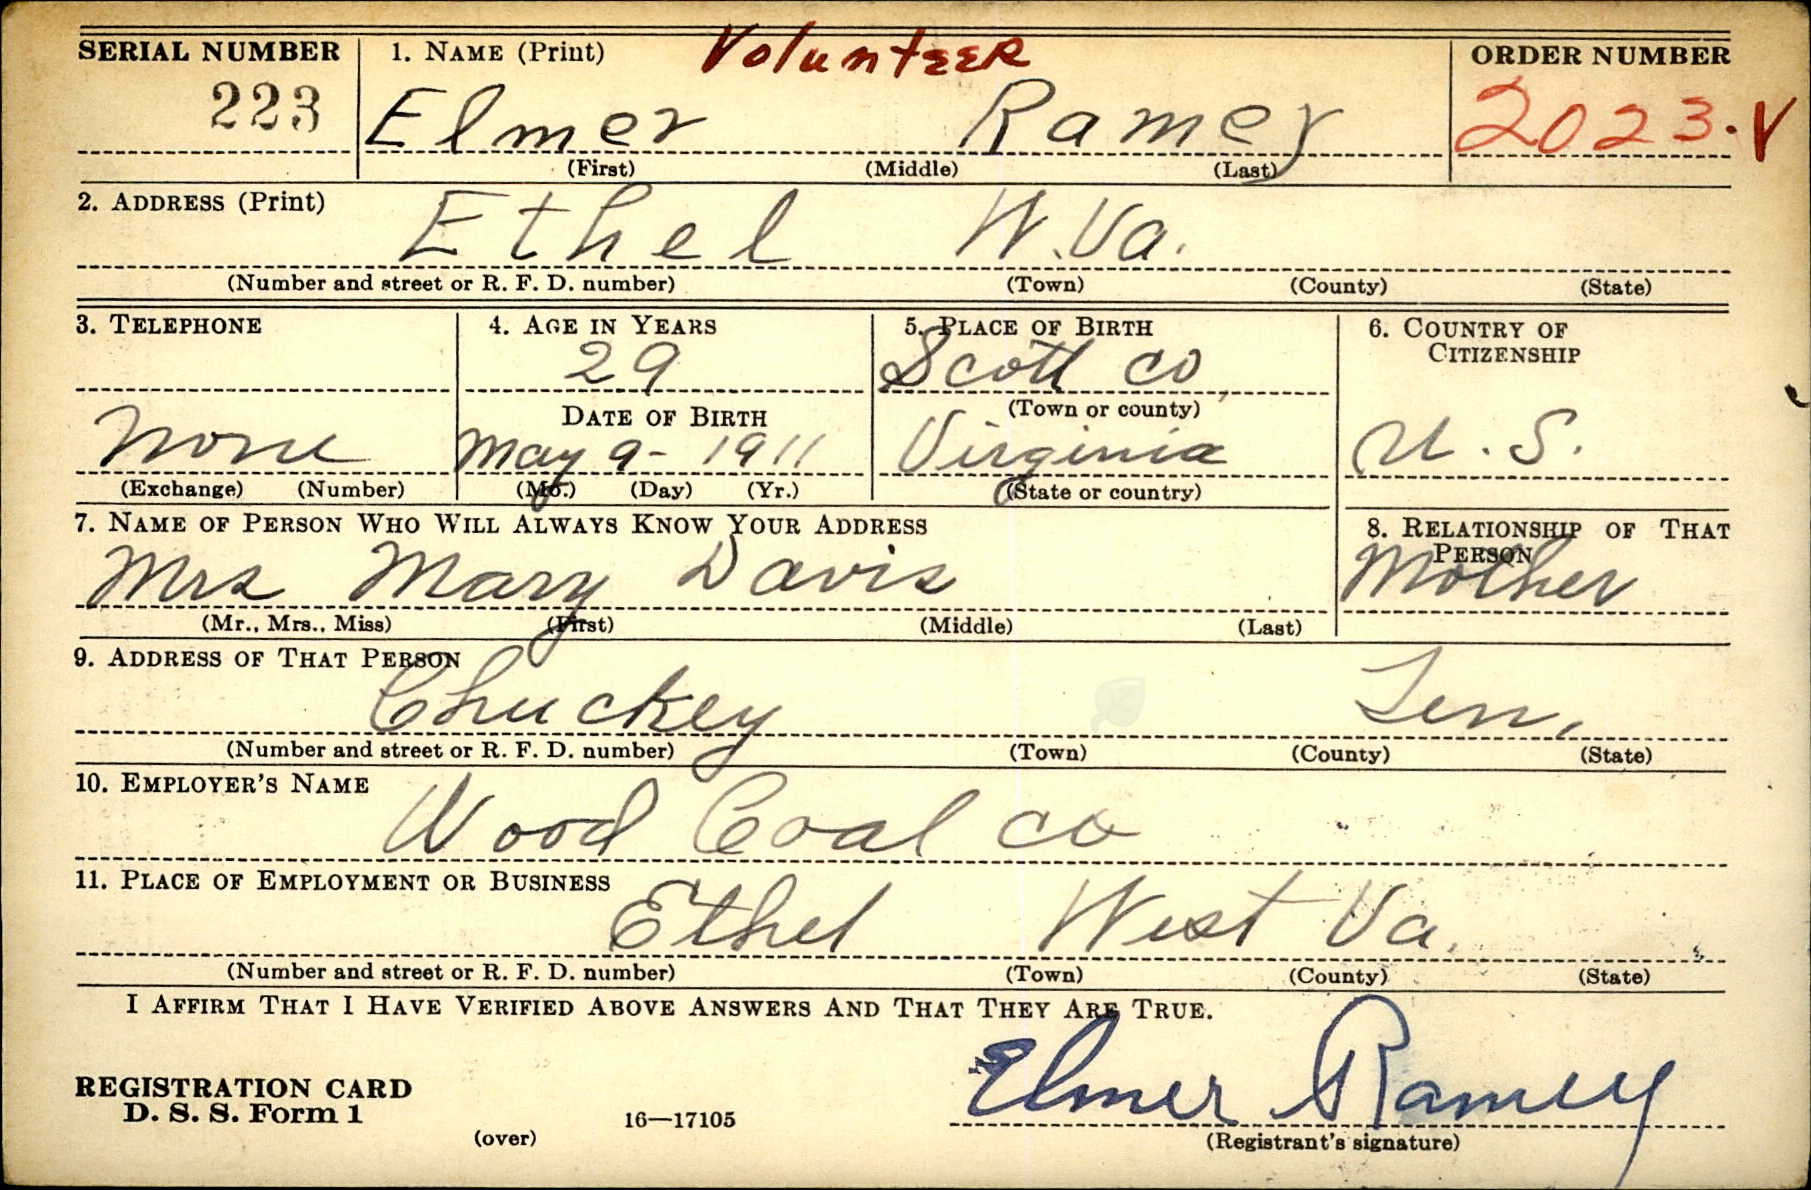 SERIAL NUMBER 1. NAME (Print) Volunteer ORDER NUMBER
223 Elmer Ramey 2023-V
(First) (Middle) (Last)
2. ADDRESS (Print)
Ethel W.Va.
(Number and street or R. F. D. number) (Town) (County) (State)
3. TELEPHONE 4. AGE IN YEARS 5. PLACE OF BIRTH 6. COUNTRY OF
CITIZENSHIP
29 Scott Co
DATE OF BIRTH (Town or county)
None May 9- 1911 Virginia U. S.
(Exchange) (Number) (Mo.) (Day) (Yr.) (State or country)
7. NAME OF PERSON WHO WILL ALWAYS KNOW YOUR ADDRESS 8. RELATIONSHIP OF THAT
PERSON
Mrs Mary Davis Mother
(Mr., Mrs., Miss) (First) (Middle) (Last)
9. ADDRESS OF THAT PERSON
Chuckey Ten,
(Number and street or R. F. D. number) (Town) (County) (State)
10. EMPLOYER'S NAME
Wood Coal Co
11. PLACE OF EMPLOYMENT OR BUSINESS
Ethel West Va.
(Number and street or R. F. D. number) (Town) (County) (State)
I AFFIRM THAT I HAVE VERIFIED ABOVE ANSWERS AND THAT THEY ARE TRUE.
Elmer Ramey
REGISTRATION CARD
D. S. S. Form 1 16—17105
(over) (Registrant's signature)